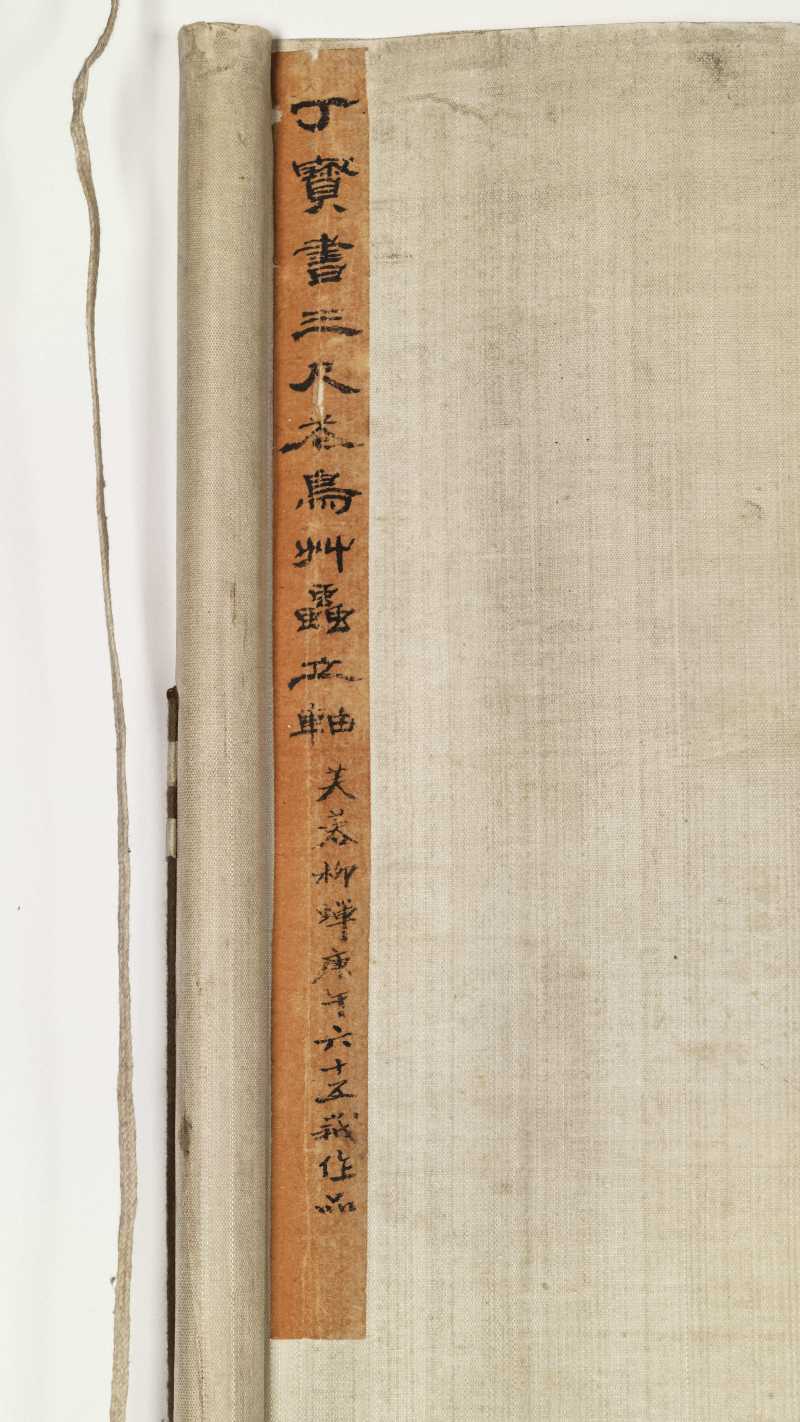 丁寶書三尺花鳥艸蟲立軸
芙蓉柳蟬庚年六十五歲作品